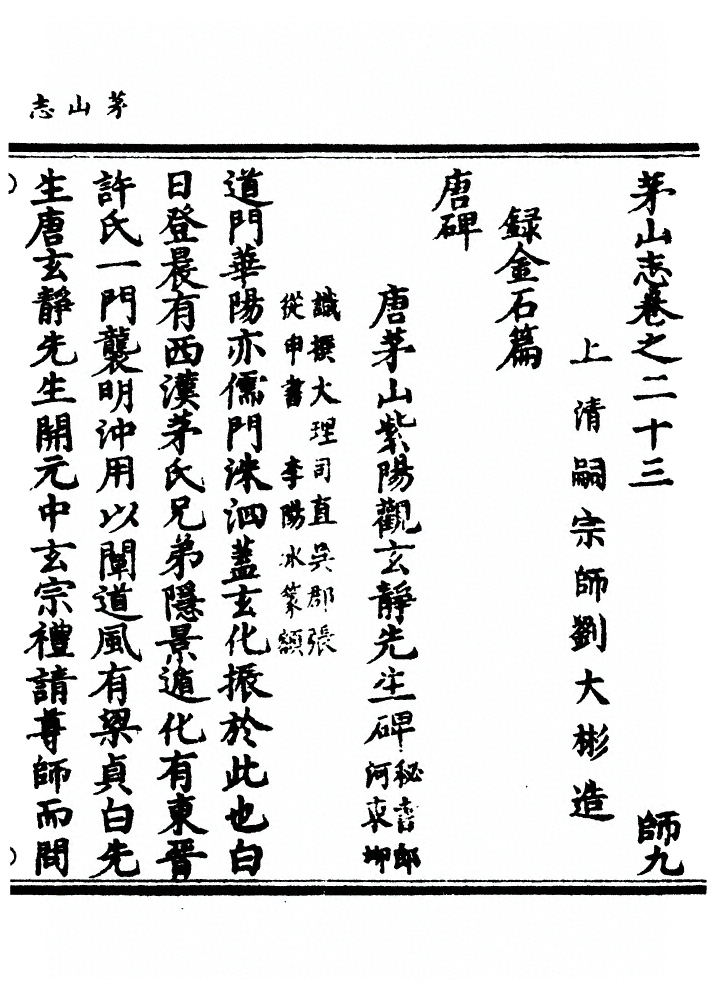 茅山志
茅山志卷之二十三 師九
上清嗣宗師劉大彬造
録金石篇
唐碑
唐茅山紫陽觀玄靜先生碑 秘書郎
河東柳
識撰大理司直吳郡張
從申書 李陽冰篆額
道門華陽亦儒門洙泗蓋玄化振於此也白
日登晨有西漢茅氏兄弟隱景遁化有東晉
許氏一門襲明沖用以闡道風有梁貞白先
生唐玄靜先生開元中玄宗禮請尊師而問